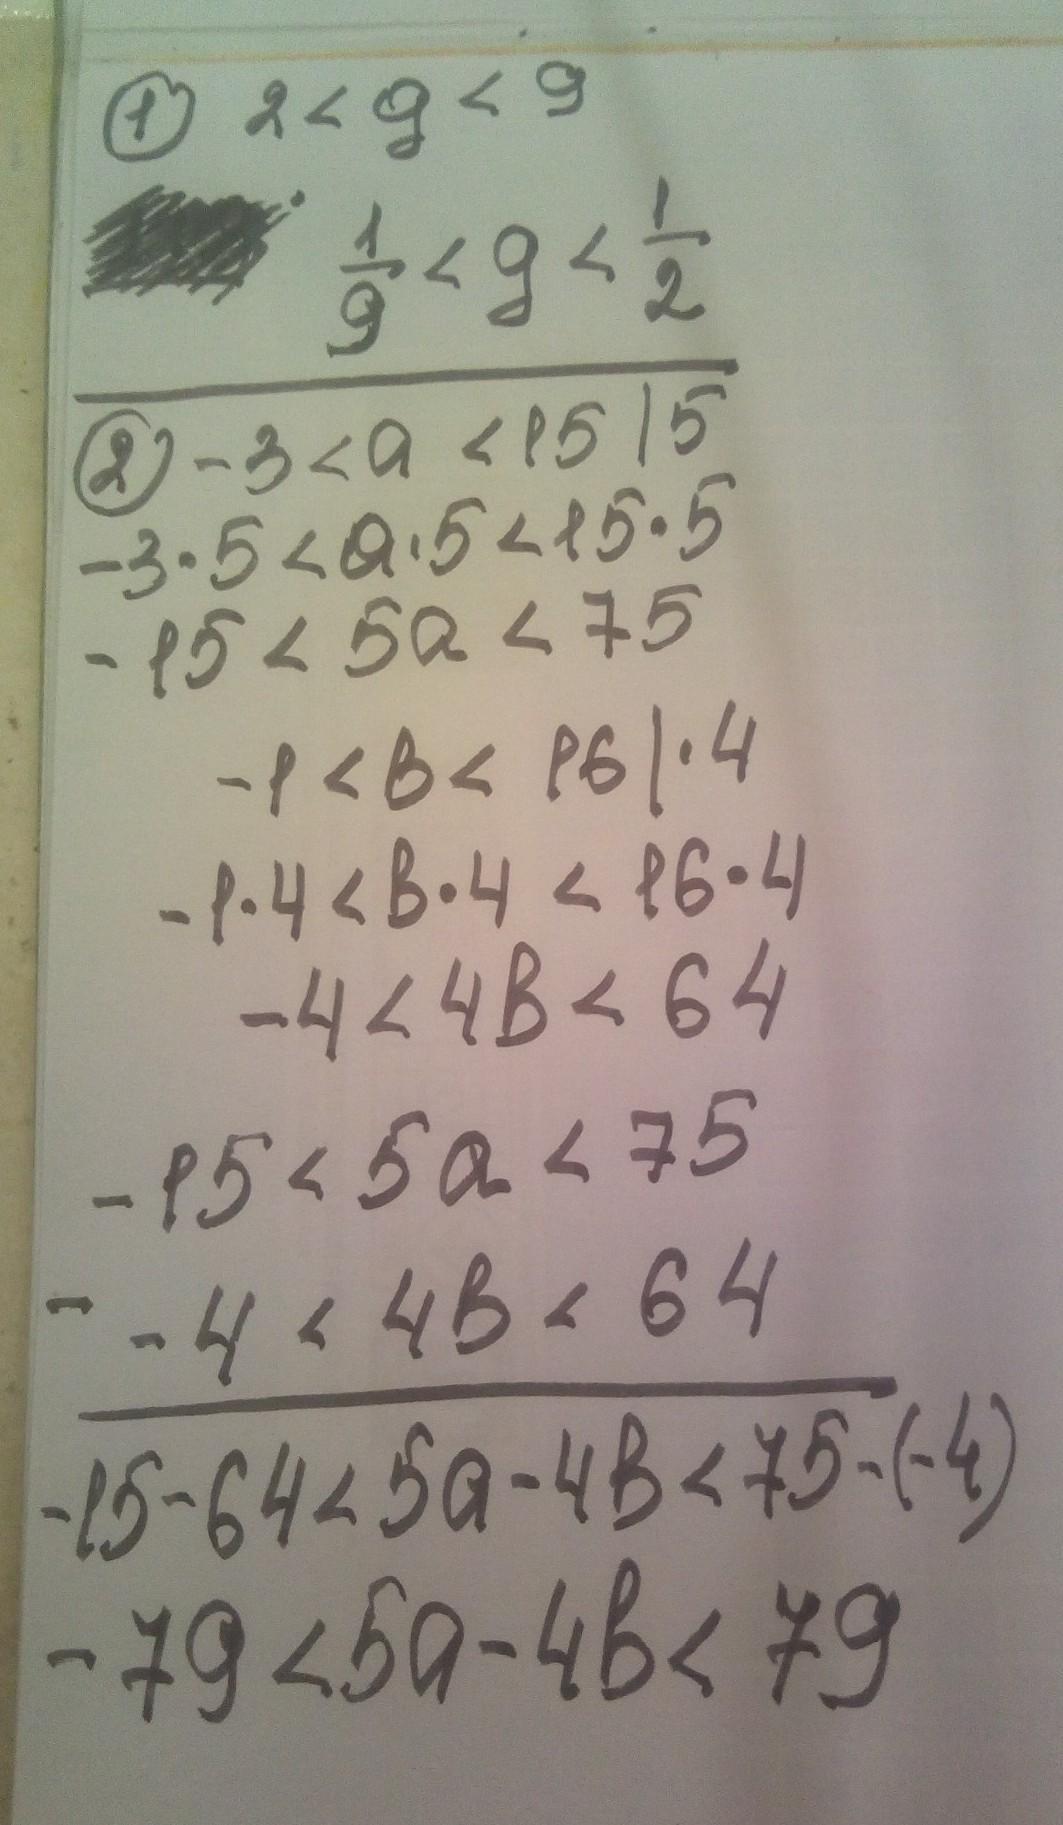 ① 2 < g < 9
1/9 < g < 1/2
② -3 < a < 15 | 5
-3·5 < a·5 < 15·5
-15 < 5a < 75
-1 < в < 16 |·4
-1·4 < в·4 < 16·4
-4 < 4в < 64
-15 < 5a < 75
- -4 < 4в < 64
-15-64 < 5a-4в < 75-(-4)
-79 < 5a-4в < 79